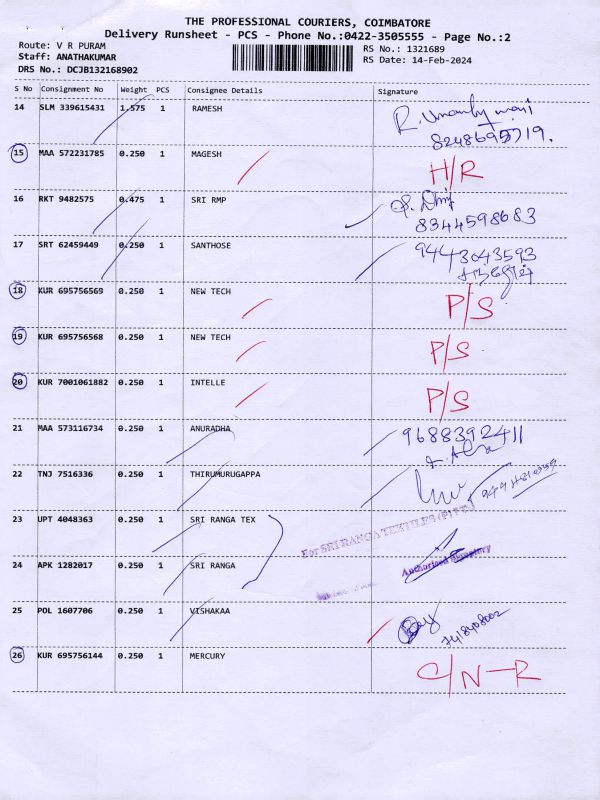 THE PROFESSIONAL COURIERS, COIMBATORE
Delivery Runsheet - PCS - Phone No.:0422-3505555 - Page No.:2
Route: V R PURAM
Staff: ANATHAKUMAR
DRS No.: DCJB132168902
RS No.: 1321689
RS Date: 14-Feb-2024
S No Consignment No Weight PCS Consignee Details Signature
14 SLM 339615431 1.575 1 RAMESH
8248695719.
15 MAA 572231785 0.250 1 MAGESH H/R
16 RKT 9482575 0.475 1 SRI RMP
8344598683
17 SRT 62459449 0.250 1 SANTHOSE 9443043593
18 KUR 695756569 0.250 1 NEW TECH P/S
19 KUR 695756568 0.250 1 NEW TECH P/S
20 KUR 7001061882 0.250 1 INTELLE P/S
21 MAA 573116734 0.250 1 ANURADHA 9688392411
22 TNJ 7516336 0.250 1 THIRUMURUGAPPA
23 UPT 4048363 0.250 1 SRI RANGA TEX
For SRI RANGA TEXTILES (P) LTD.
24 APK 1282017 0.250 1 SRI RANGA Authorised Signatory
25 POL 1607706 0.250 1 VISHAKAA
26 KUR 695756144 0.250 1 MERCURY C/N-R